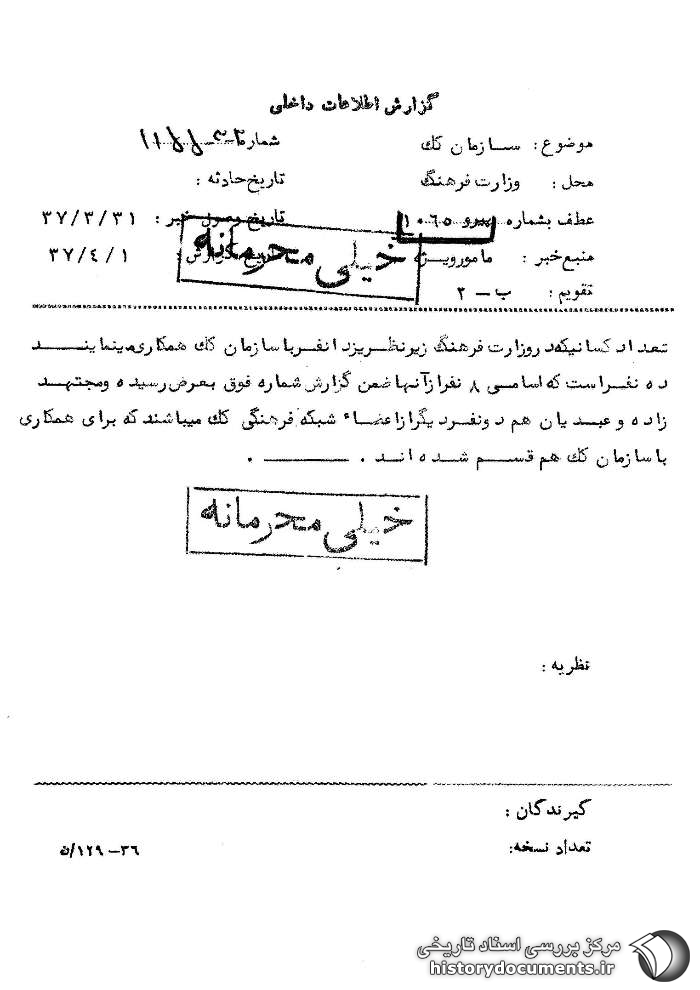 گزارش اطلاعات داخلی
موضوع : سازمان کك شماره
محل : وزارت فرهنگ تاریخ حادثه :
عطف بشماره پیرو ۱۰۶۵ تاریخ وصول خبر : ۳۷/۳/۳۱
منبع خبر : مامور ویژه تاریخ گزارش : ۳۷/٤/۱
خیلی محرمانه
تقویم : ب – ۲
تعداد کسانیکه در وزارت فرهنگ زیر نظر یزدانفر با سازمان کك همکاری مینمایند
ده نفر است که اسامی ۸ نفر از آنها ضمن گزارش شماره فوق بعرض رسیده و مجتهد
زاده و عبدیان هم دو نفر دیگر از اعضاء شبکه فرهنگی کك میباشند که برای همکاری
با سازمان کك هم قسم شده اند . ــــــــ .
خیلی محرمانه
نظریه :
گیرندگان :
تعداد نسخه: ۳۶–۱۲۹/ن
مرکز بررسی اسناد تاریخی
historydocuments.ir